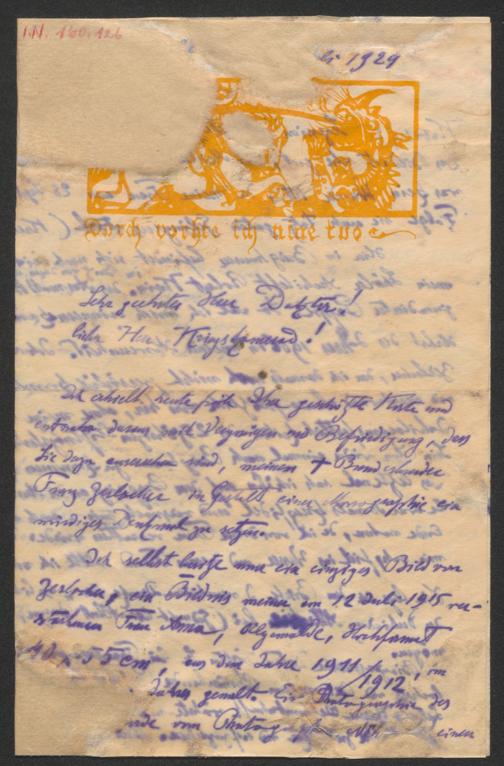 I.N. 160.126
li 1929
Durch vorhte ich nine two
Sehr geehrter Herr Doktor!
lieber Herr Kriegskamerad!
Ich erhielt heute früh Ihre geschätzte Karte und
entnehme daraus mit Vergnügen und Befriedigung, dass
Sie dazu ausersehen sind, meinem † Bundesbruder
Franz Zerlacher in Gestalt einer Monographie ein
würdiges Denkmal zu setzen.
Ich selbst besitze nur ein einziges Bild von
Zerlacher, ein Bildnis meiner am 12 Juli 1915 ver-
storbenen Frau Anna, Ölgemälde, Hochformat
42 x 55 cm, aus dem Jahre 1911
/1912, in
gemalt. Ein Photographie des
vom
einen